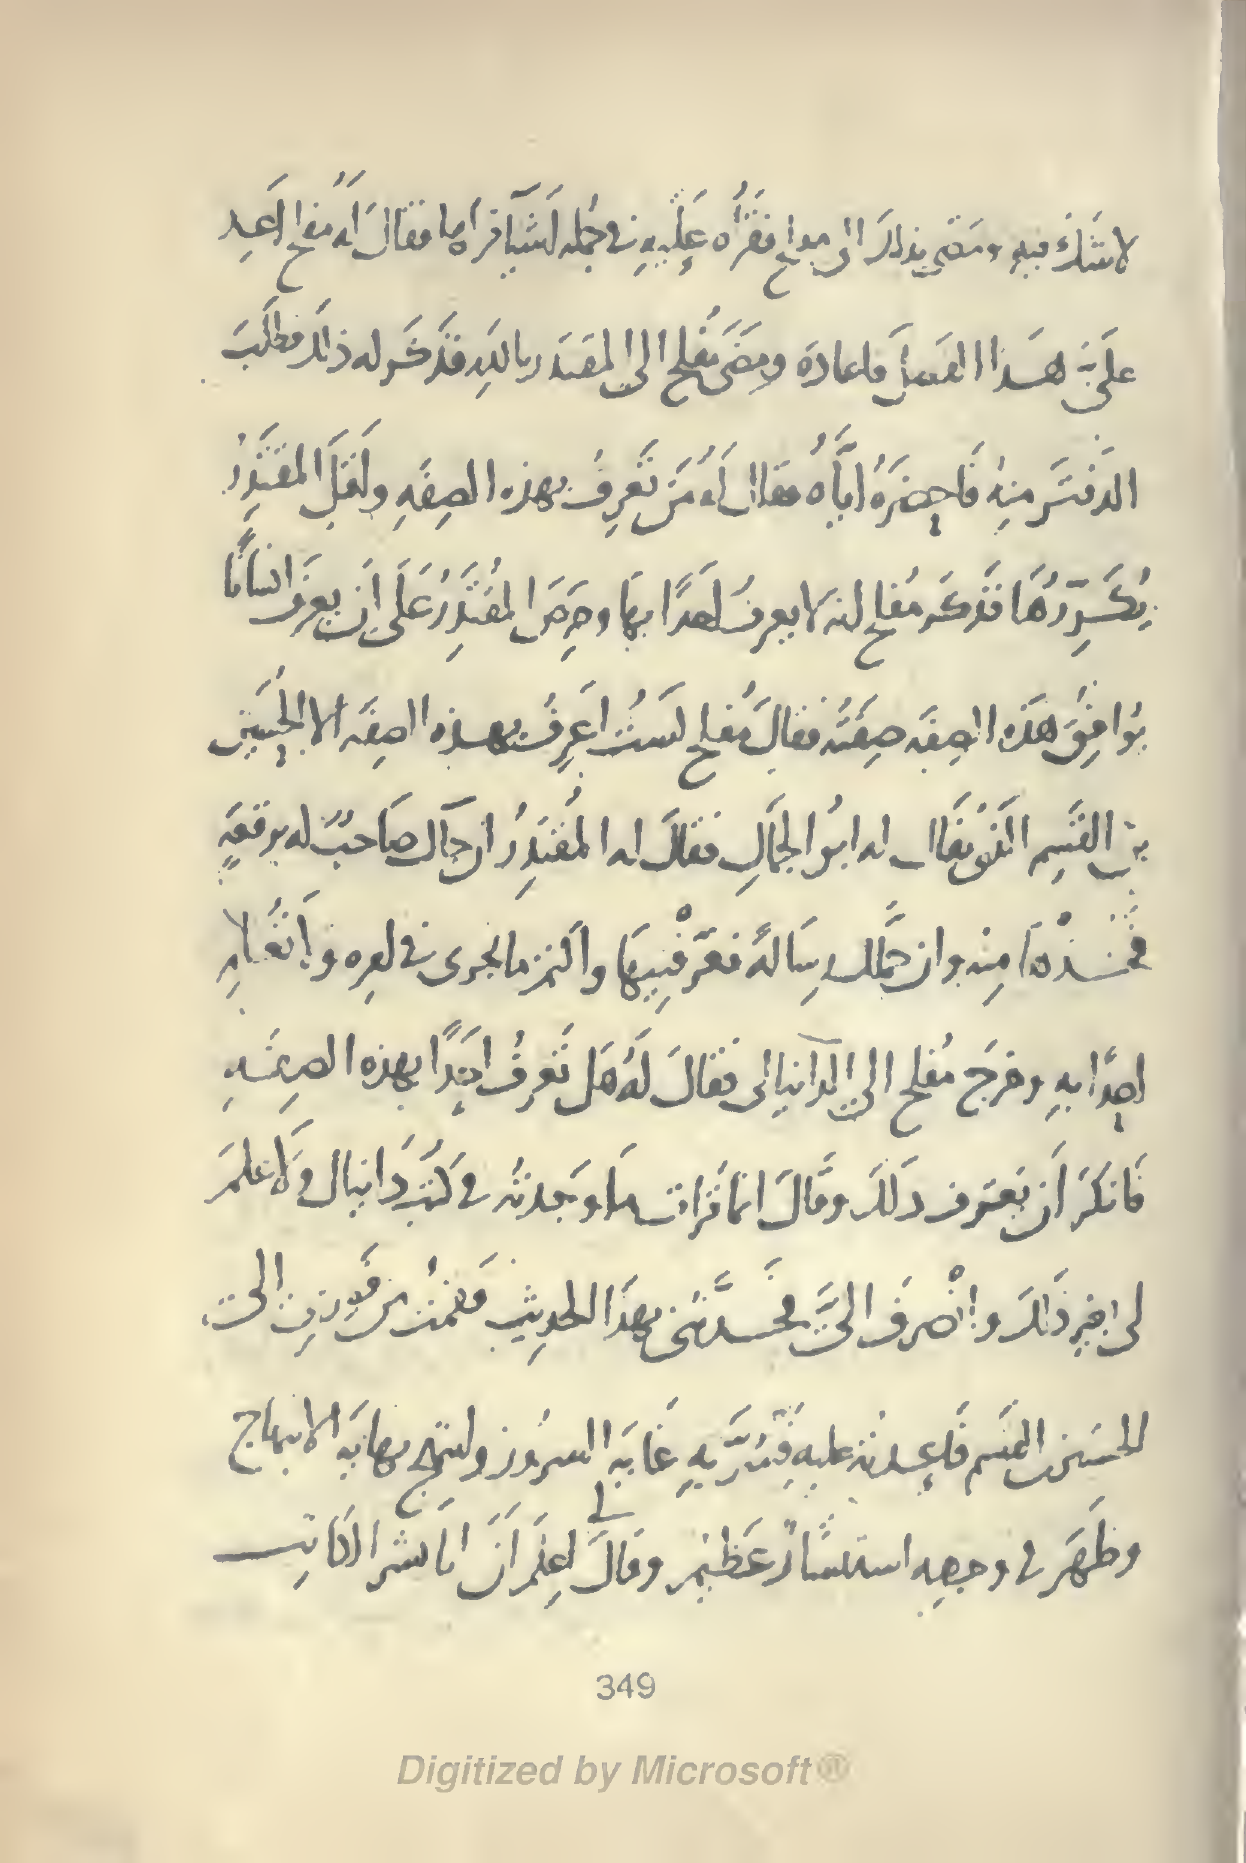 لا شَكَّ فيهِ ومَضَى بذلكَ الى مفلح فقَرَأه عَلَيهِ في جُمله أشيَآ قرأها فقالَ له مُفلح أعِد
عَلَيَّ هَذا الفصلَ فاعادَه ومَضَى مُفلح الى المقتدر بالله فذَكَرَ له ذلك فطلَبَ
الدفتَر مِنهُ فأَحضَرَهُ ايَّاهُ فقال لَهُ مَن تَعرِفُ بهذه الصِفَهِ وأقبَلَ المقتَدِرُ
يُكَرِّرُهَا فذَكَرَ مُفلح انه لا يعرِفُ أحَدًا بها وحِرصَ المُقتَدِرُ عَلَى أن يعرف انسانًا
يُوافِقُ هَذه الصِفَه صِفَتَهُ فقالَ مُفلح لَستُ اَعرِفُ بهذه الصِفَه الا الحُسَين
بن القسِم الَّذي يُقَال له ابُو الجَمَالِ فقالَ له المُقتَدِرُ ان جآك صَاحبٌ له برقعَهٍ
فخُذْهَا مِنه وان حمَّلك رِسَالهً فعَرِّفْنِيهَا واكتم ما يجرى في أمره ولا تُعْلِم
أحدًا بهِ وخرَجَ مُفلح الى الدآنيالى فقالَ لَهُ هَل تَعرِفُ احَدًا بهذه الصِفَهِ
فَانكَرَ أن يَعرِف ذَلكَ وقَالَ انما قَرَات مَا وَجدتُه في كُتُبِ دَانيال ولَا عِلمَ
لى بغيرِ ذَلكَ وانْصرفَ اليَّ فحَدَّثَنى بهَذَا الحدِيثِ فقُمتُ من فَورِى الى
الحُسَين بن القسَم فَأعدتُه عليهِ فَسُرَّ بهِ غَايَه السرُورِ وابتهج نهايَه الابتهاج
وظَهَر في وجهِه استبشَارٌ عَظِيمٌ وقالَ لى اعلَم أنَّ ابَا بشر الكَاتِب
349
Digitized by Microsoft®